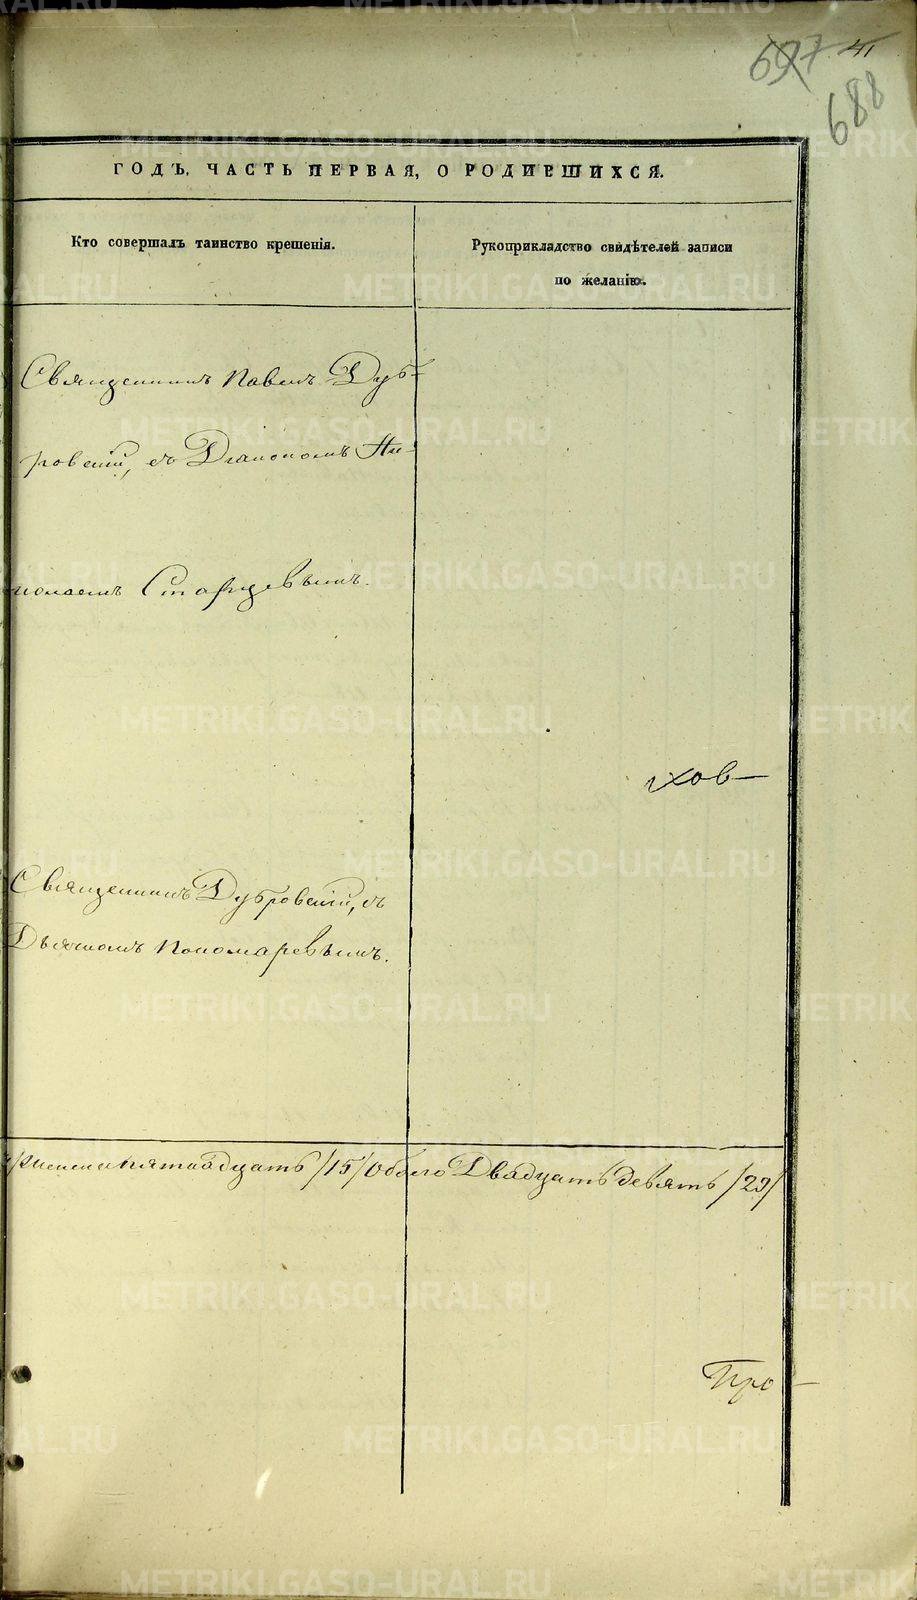 697 41
688
ГОДЪ, ЧАСТЬ ПЕРВАЯ, О РОДИВШИХСЯ.
Кто совершалъ таинство крещенія.
Рукоприкладство свидѣтелей записи
по желанію.
Священникъ Павелъ Дуб-
ровскій, съ Діакономъ Ни-
колаемъ Старцевымъ.
ховъ
Священникъ Дубровскій, съ
Дьячкомъ Пономаревымъ.
женска пятнадцать /15/ Обоего Двадцать девять /29/
Про-
METRIKI.GASO-URAL.RU